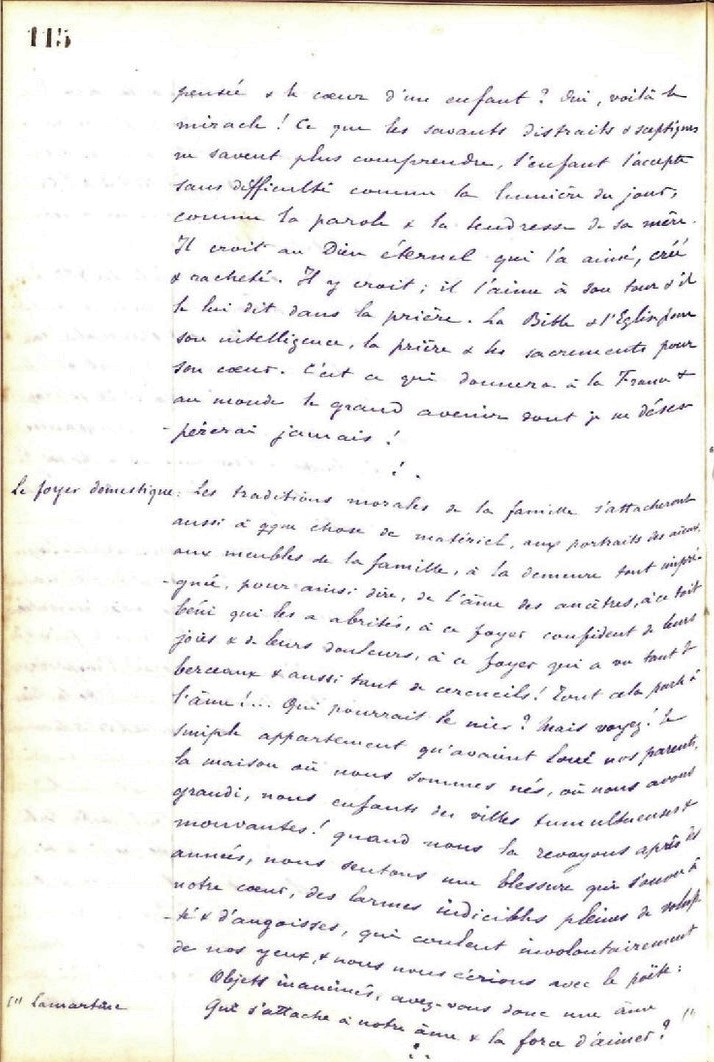 115
pensée & le cœur d'un enfant ? Oui, voilà le
miracle ! Ce que les savants distraits & sceptiques
ne savent plus comprendre, l'enfant l'accepte
sans difficulté comme la lumière du jour,
comme la parole & la tendresse de sa mère.
Il croit au Dieu éternel qui l'a aimé, créé
& racheté. Il y croit ; il l'aime à son tour & il
le lui dit dans la prière. La Bible & l'Eglise pour
son intelligence, la prière & les sacrements pour
son cœur. C'est ce qui donnera à la France &
au monde le grand avenir dont je ne déses-
-pérerai jamais !
Le foyer domestique : Les traditions morales de la famille s'attacheront
aussi à qque chose de matériel, aux portraits des aïeux,
aux meubles de la famille, à la demeure tout impré-
-gnée, pour ainsi dire, de l'âme des ancêtres, à ce toit
béni qui les a abrités, à ce foyer confident de leurs
joies & de leurs douleurs, à ce foyer qui a vu tant de
berceaux & aussi tant de cercueils ! Tout cela parle à
l'âme !... Qui pourrait le nier ? Mais voyez ! le
simple appartement qu'avaient loué nos parents,
la maison où nous sommes nés, où nous avons
grandi, nous enfants des villes tumultueuses &
mouvantes ! quand nous la revoyons après des
années, nous sentons une blessure qui s'ouvre à
notre cœur, des larmes indicibles pleines de volup-
-té & d'angoisses, qui coulent involontairement
de nos yeux, & nous nous écrions avec le poëte :
Objets inanimés, avez-vous donc une âme
(1) Lamartine
Qui s'attache à notre âme & la force d'aimer ? (1)